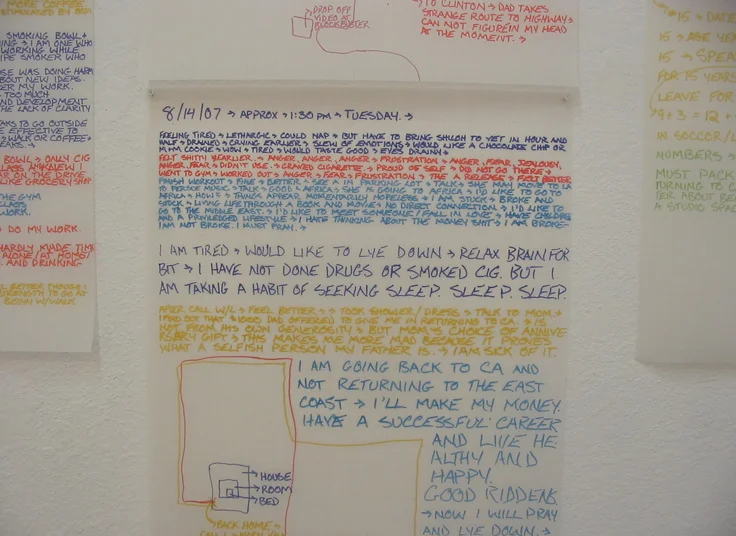 MORE COFFEE
STIMULATED BY
SMOKING BOWL
I AM ONE WHO
WORKING WHILE
PIPE SMOKER WHO
SE WAS DOING HARM
BOUT NEW IDEAS.
ER MY WORK.
TOO MUCH
ND DEVELOPMENT
THE LACK OF CLARITY
AKS TO GO OUTSIDE
E EFFECTIVE TO
WALK OR COFFEE
EAKS.
BOWL → ONLY CIG
AR ON THE DRIVE
LIKE GROCERY SHOP
THE GYM
CLASS
WORK.
DO MY WORK.
HARDLY MADE TIME
ALONE / AT HOME /
AND DRINKING
STRENGTH TO GO AT
BEGIN W/WALK.
DROP OFF
VIDEO AT
BLOCKBUSTER
TO CLINTON → DAD TAKES
STRANGE ROUTE TO HIGHWAY →
CAN NOT FIGURE IN MY HEAD
AT THE MOMENT. →
8/14/07 → APPROX → 1:30 PM → TUESDAY. →
FEELING TIRED → LETHARGIC → COULD NAP → BUT HAVE TO BRING SHILOH TO VET IN HOUR AND
HALF → DRAINED → CRYING EARLIER → SLEW OF EMOTIONS → WOULD LIKE A CHOCOLATE CHIP OR
M+M COOKIE → WOW → TIRED → WOULD TASTE GOOD → EYES DRAWN →
FELT SHITY EARLIER. → ANGER, ANGER, ANGER → FROSTRATION → ANGER, FEAR, JEALOUSY,
ANGER, FEAR → DIDN'T USE → CRAVED CIGARETTE → PROUD OF SELF → DID NOT GO THERE →
WENT TO GYM → WORKED OUT → ANGER → FEAR → FRUSTRATION → A RELEASE → FELT BETTER
FINISH WORKOUT → FINE → BETTER → SEE A IN PARKING LOT → TALK → SHE MAY MOVE TO LA
TO PERSUE MUSIC → TALK → GOOD → AFRICA → SHE IS GOING TO AFRICA → I'D LIKE TO GO TO
AFRICA → HOW → THINGS APPEAR MOMENTARILY HOPELESS → I AM STUCK → BROKE AND
STUCK → LIVING LIFE THROUGH A BOOK AND MOVIES → NO DIRECT CONNECTION → I'D LIKE TO
GO TO THE MIDDLE EAST. → I'D LIKE TO MEET SOMEONE / FALL IN LOVE → HAVE CHILDREN
AND A PRIVILEDGED LIFESTYLE → I HATE THINKING ABOUT THE MONEY SHIT → I AM BROKE→
I AM NOT BROKE. I MUST PRAY. →
I AM TIRED → WOULD LIKE TO LYE DOWN → RELAX BRAIN FOR
BIT → I HAVE NOT DONE DRUGS OR SMOKED CIG. BUT I
AM TAKING A HABIT OF SEEKING SLEEP. SLEEP. SLEEP.
AFTER CALL W/L → FEEL BETTER. → TOOK SHOWER / DRESS → TALK TO MOM. →
I FIND OUT THAT $1000 DAD OFFERED TO GIVE ME IN RETURNING TO CA. → IS
NOT FROM HIS OWN GENEROSITY → BUT MOM'S CHOICE OF ANNIVE
RSARY GIFT → THIS MAKES ME MORE MAD BECAUSE IT PROVES
WHAT A SELFISH PERSON MY FATHER IS. → I AM SICK OF IT.
I AM GOING BACK TO CA AND
NOT RETURNING TO THE EAST
COAST → I'LL MAKE MY MONEY.
HAVE A SUCCESSFUL CAREER
AND LIVE HE
ALTHY AND
HAPPY.
GOOD RIDDENS.
→ NOW I WILL PRAY
AND LYE DOWN. →
→ HOUSE
→ ROOM
→ BED
BACK HOME →
15 → DATE
15 → AGE
15 → SPEA
FOR 15 YEARS
LEAVE FOR
9 + 3 = 12
IN SOCCER/L
NUMBERS →
MUST PACK
TURNING TO C
TER ABOUT BE
A STUDIO SPA